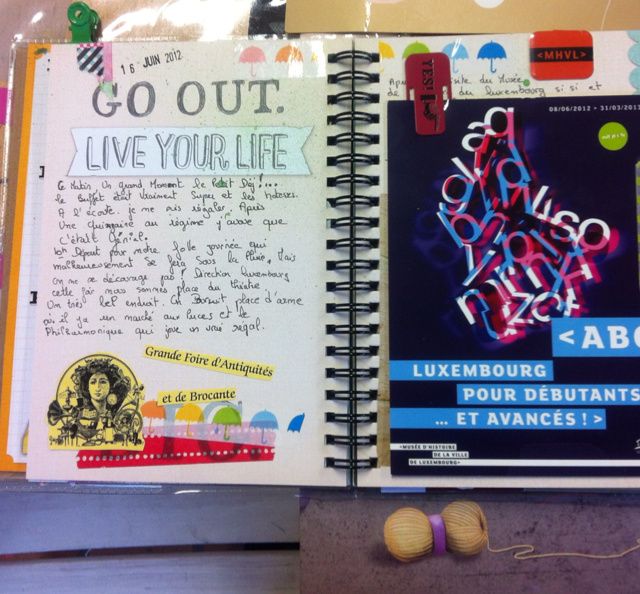 16 JUIN 2012
GO OUT.
LIVE YOUR LIFE
Ce Matin, Un grand Moment le Petit Déj!...
le Buffet était Vraiment Super et les hotesses
A l'écoute. je me suis régaler. Après
Une Quinzaine au régime j'avoue que
C'était Génial.
bon Départ pour notre folle journée qui
malheureusement se fera sous la Pluie. Mais
on ne se décourage pas! Direction Luxembourg
cette fois nous sommes place du théâtre
Un très bel endroit. On Poursuit place d'arme
où il y a un marché aux puces et le
Philharmonique qui joue un vrai régal.
Grande Foire d'Antiquités
et de Brocante
YES!
<MHVL>
visite du Musée
de du Luxembourg si si et
08/06/2012 › 31/03/201
<ABC
LUXEMBOURG
POUR DÉBUTANTS
... ET AVANCÉS ! >
<MUSÉE D'HISTOIRE
DE LA VILLE
DE LUXEMBOURG>